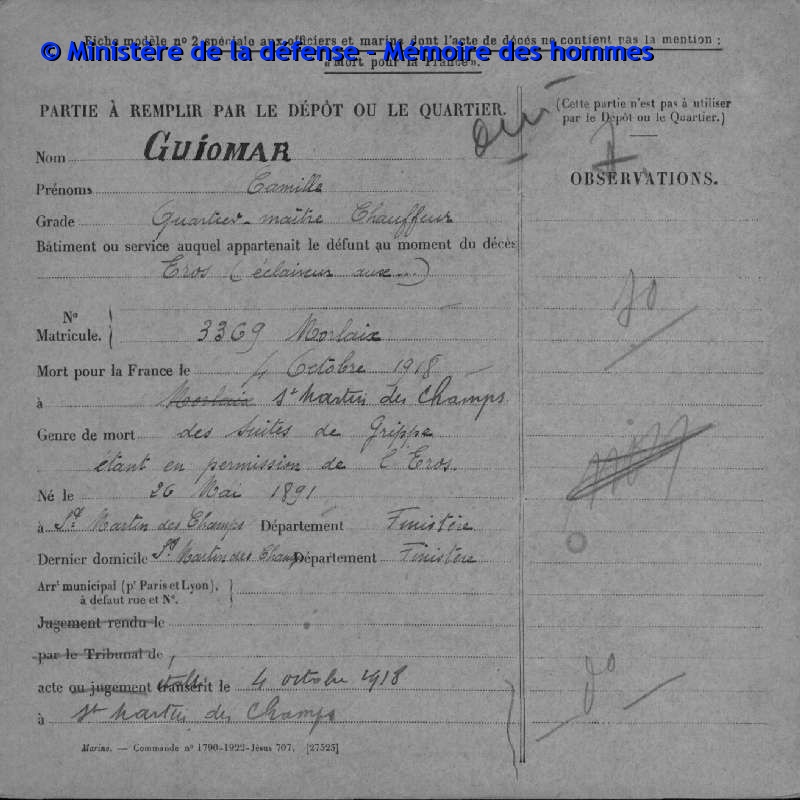 Fiche modèle nº 2 spéciale aux officiers et marins dont l'acte de décès ne contient pas la mention :
© Ministère de la défense - Mémoire des hommes
« Mort pour la France ».
PARTIE À REMPLIR PAR LE DÉPÔT OU LE QUARTIER.
oui
Nom GUIOMAR
Prénoms Camille
Grade Quartier-maître Chauffeur
Bâtiment ou service auquel appartenait le défunt au moment du décès
Eros (éclaireur aux...)
Nº Matricule. 3369 Morlaix
Mort pour la France le 4 Octobre 1918
à Morlaix St Martin des Champs
Genre de mort des suites de Grippe
étant en permission de l'Eros.
Né le 26 Mai 1891
à St Martin des Champs Département Finistère
Dernier domicile St Martin des Champs Département Finistère
Arrt municipal (pr Paris et Lyon),
à défaut rue et Nº.
Jugement rendu le
par le Tribunal de
acte ou jugement transcrit le 4 octobre 1918
à St Martin des Champs
Marine. — Commande nº 1790-1922-Jésus 707. [27525]
(Cette partie n'est pas à utiliser
par le Dépôt ou le Quartier.)
OBSERVATIONS.